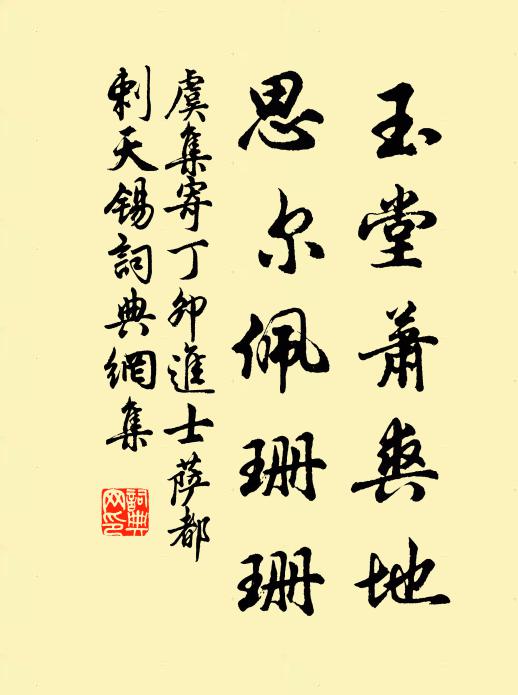 玉堂萧爽地
思尔佩珊珊
虞集寄丁卯進士萨都
剌天锡詞典網集
詞典网印